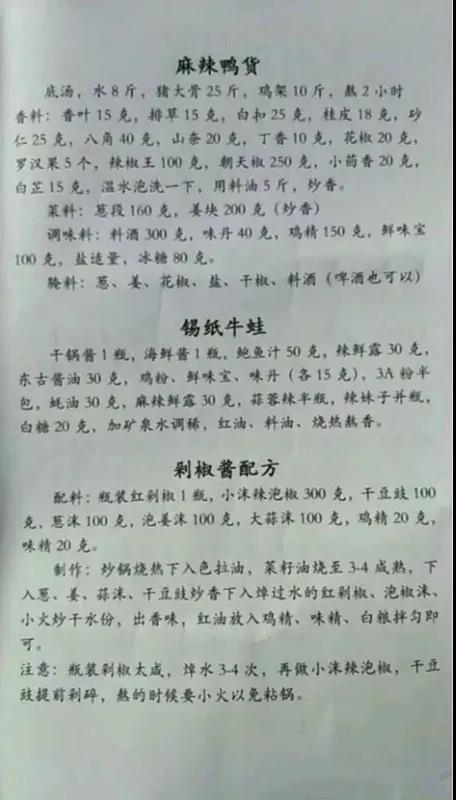 麻辣鸭货
底汤，水8斤，猪大骨25斤，鸡架10斤，熬2小时
香料：香叶15克，排草15克，白扣25克，桂皮18克，砂
仁25克，八角40克，山奈20克，丁香10克，花椒20克，
罗汉果5个，辣椒王100克，朝天椒250克，小茴香20克，
白芷15克，温水泡洗一下，用料油5斤，炒香。
菜料：葱段160克，姜块200克（炒香）
调味料：料酒300克，味丹40克，鸡精150克，鲜味宝
100克，盐适量，冰糖80克。
腌料：葱、姜、花椒、盐、干椒、料酒（啤酒也可以）
锡纸牛蛙
干锅酱1瓶，海鲜酱1瓶，鲍鱼汁50克，辣鲜露30克，
东古酱油30克，鸡粉、鲜味宝、味丹（各15克），3A粉半
包，蚝油30克，麻辣鲜露30克，蒜蓉辣半瓶，辣妹子并瓶，
白糖20克，加矿泉水调稀，红油、料油、烧热熬香。
剁椒酱配方
配料：瓶装红剁椒1瓶，小沫辣泡椒300克，干豆豉100
克，葱沫100克，泡姜沫100克，大蒜沫100克，鸡精20克，
味精20克。
制作：炒锅烧热下入色拉油，菜籽油烧至3-4成熟，下
入葱、姜、蒜沫、干豆豉炒香下入焯过水的红剁椒、泡椒沫、
小火炒干水份，出香味，红油放入鸡精、味精、白粮拌匀即
可。
注意：瓶装剁椒太咸，焯水3-4次，再做小沫辣泡椒，干豆
豉提前剁碎，熬的时候要小火以免粘锅。